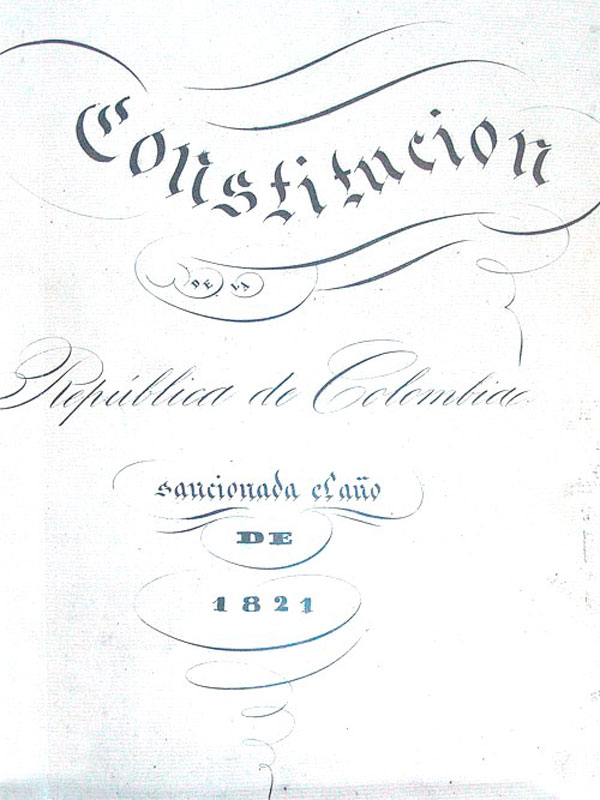 Constitucion
DE LA
República de Colombia
sancionada el año
DE
1821